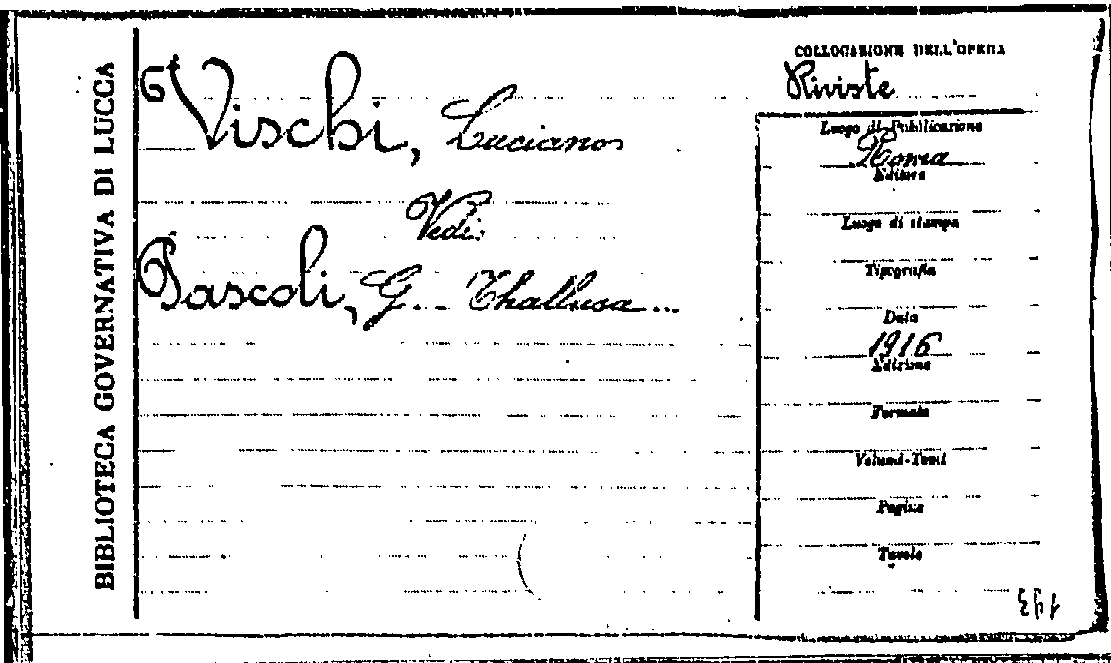 BIBLIOTECA GOVERNATIVA DI LUCCA
Vischi, Luciano
Vedi:
Pascoli, G... Thallusa...
COLLOCAZIONE DELL'OPERA
Riviste
Luogo di Pubblicazione
Roma
Editore
Luogo di stampa
Tipografia
Data
1916
Edizione
Formato
Volumi-Tomi
Pagine
Tavole